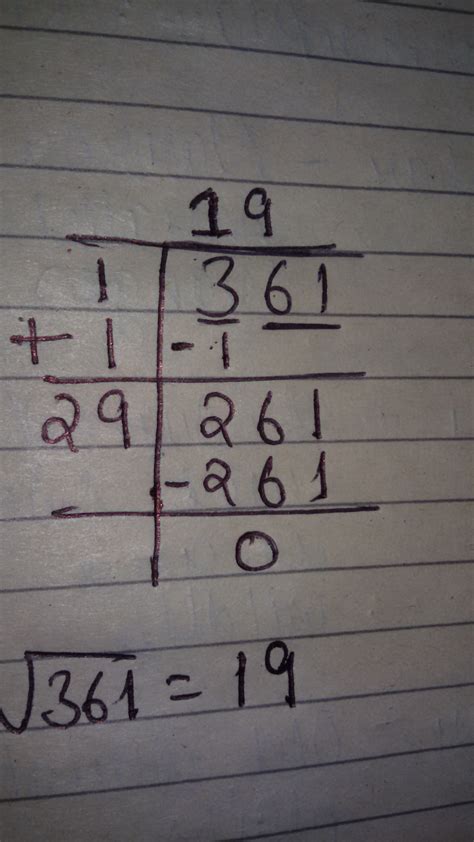 19
1 361
+ 1 -1
29 261
-261
0
√361 = 19